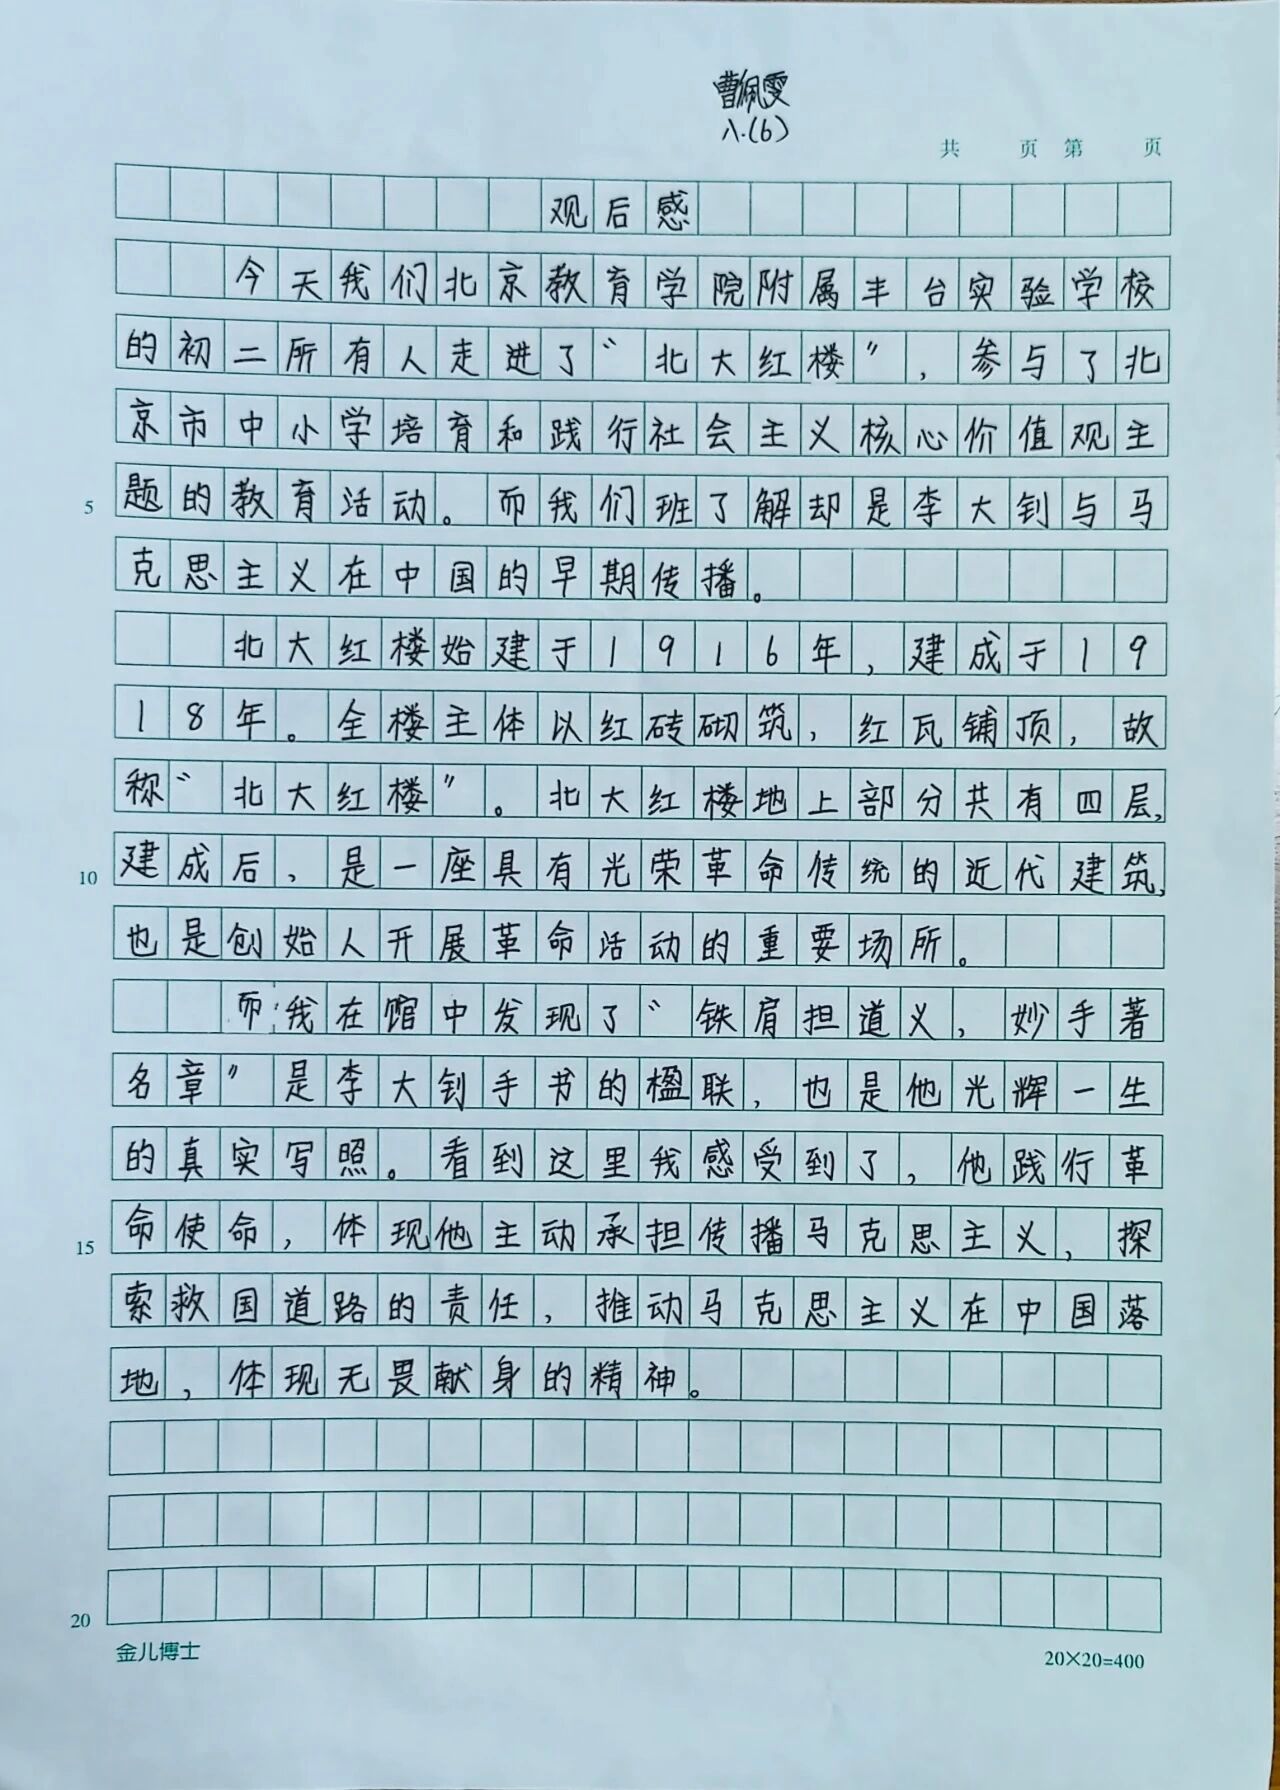 曹佩雯
八.(6)
共 页 第 页
观后感
今天我们北京教育学院附属丰台实验学校
的初二所有人走进了“北大红楼”，参与了北
京市中小学培育和践行社会主义核心价值观主
5 题的教育活动。而我们班了解却是李大钊与马
克思主义在中国的早期传播。
北大红楼始建于1916年，建成于19
18年。全楼主体以红砖砌筑，红瓦铺顶，故
称“北大红楼”。北大红楼地上部分共有四层，
10 建成后、是一座具有光荣革命传统的近代建筑，
也是创始人开展革命活动的重要场所。
而我在馆中发现了“铁肩担道义，妙手著
名章”是李大钊手书的楹联，也是他光辉一生
的真实写照。看到这里我感受到了，他践行革
15 命使命，体现他主动承担传播马克思主义，探
索救国道路的责任，推动马克思主义在中国落
地，体现无畏献身的精神。
20
金儿博士 20×20=400